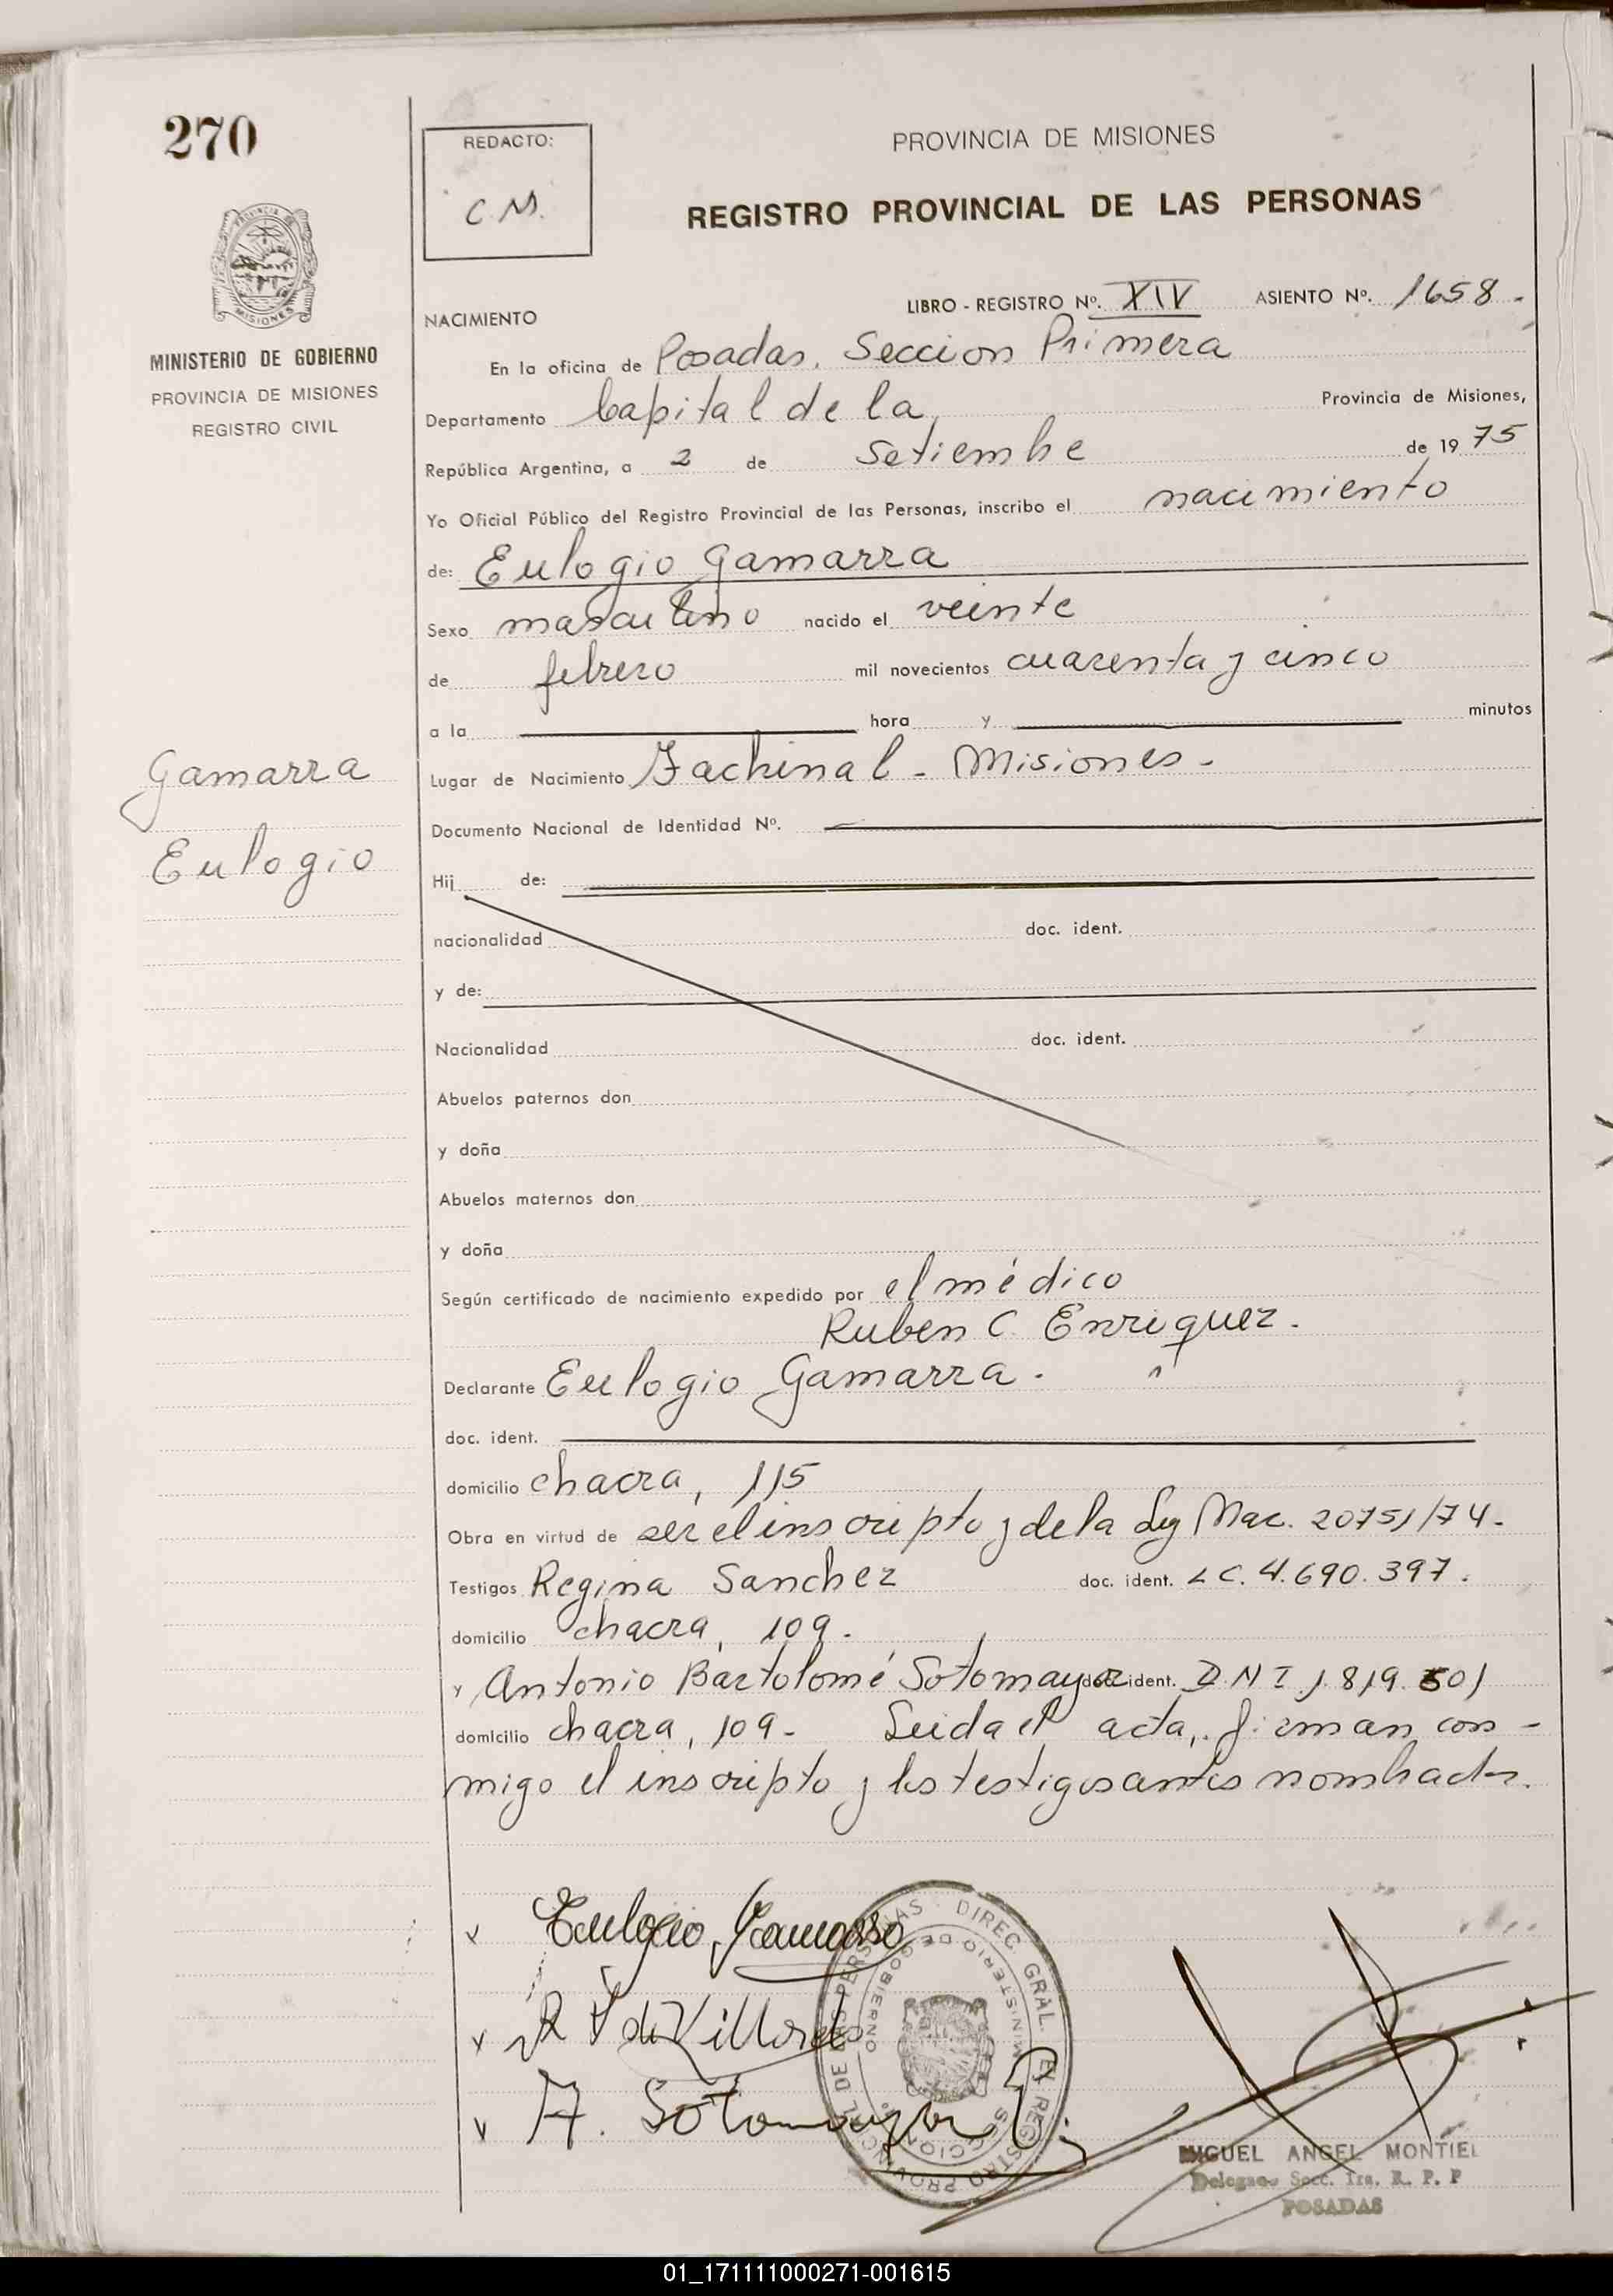 270
REDACTO:
C.M.
PROVINCIA DE MISIONES
REGISTRO PROVINCIAL DE LAS PERSONAS
PROVINCIA DE
MISIONES
MINISTERIO DE GOBIERNO
PROVINCIA DE MISIONES
REGISTRO CIVIL
LIBRO - REGISTRO Nº. XIV ASIENTO Nº. 1658.
NACIMIENTO
En la oficina de Posadas, Seccion Primera
Departamento Capital de la, Provincia de Misiones,
República Argentina, a 2 de Setiembe de 19 75
Yo Oficial Público del Registro Provincial de las Personas, inscribo el nacimiento
de: Eulogio Gamarra
Sexo masculino nacido el veinte
de febrero mil novecientos cuarenta y cinco
a la hora y minutos
Gamarra
Eulogio
Lugar de Nacimiento Fachinal - Misiones.-
Documento Nacional de Identidad Nº.
Hij de:
nacionalidad doc. ident.
y de:
Nacionalidad doc. ident.
Abuelos paternos don
y doña
Abuelos maternos don
y doña
Según certificado de nacimiento expedido por el médico
Ruben C. Enriquez.
Declarante Eulogio Gamarra.
doc. ident.
domicilio chacra, 115
Obra en virtud de ser el inscripto y de la Ley Nac. 20751/74.
Testigos Regina Sanchez doc. ident. LC. 4.690.397.
domicilio chacra, 109.
y Antonio Bartolomé Sotomayor doc. ident. D.N.I 1.819.501
domicilio chacra, 109- Leida el acta, firman con-
migo el inscripto y los testigos antes nombrados.
Eulogio Gamarra
de Villordo
A. Sotomayor
DIREC. GRAL. REGISTRO PROVINCIAL DE LAS PERSONAS
MINISTERIO DE GOBIERNO
SECCION
MIGUEL ANGEL MONTIEL
Delegado Secc. 1ra. R. P. P
POSADAS
01_171111000271-001615